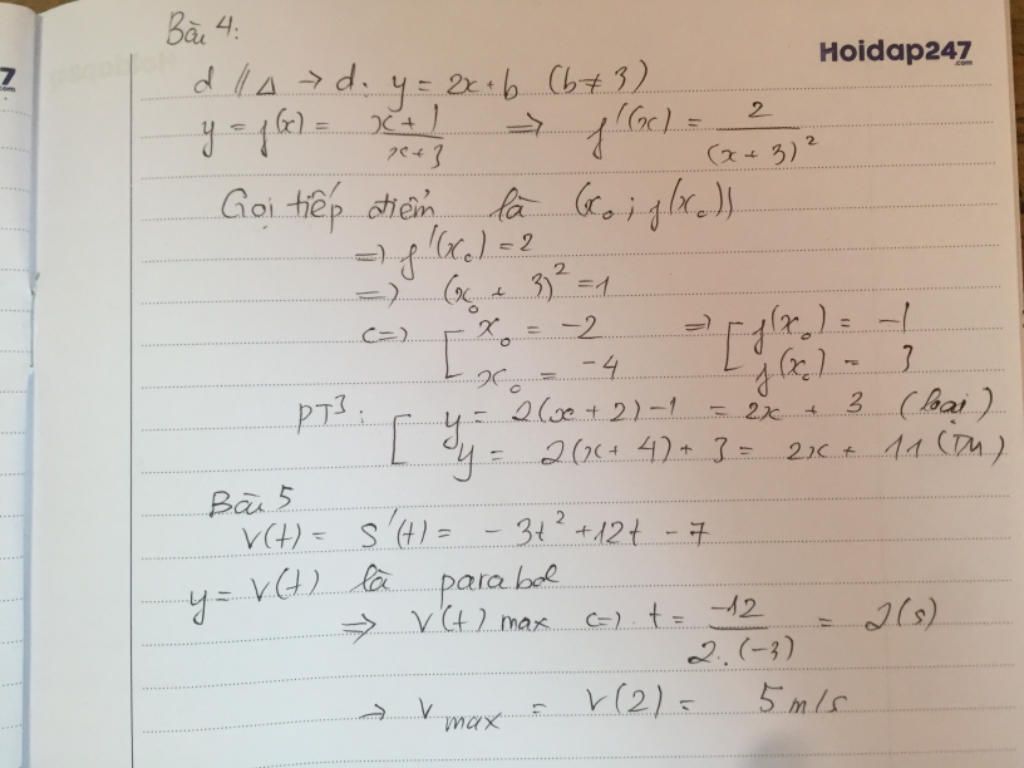 Bài 4:
Hoidap247
.com
7
.com
d // Δ → d: y = 2x + b (b ≠ 3)
y = f(x) = x + 1 / x + 3 ⇒ f'(x) = 2 / (x + 3)²
Gọi tiếp điểm là (x₀ ; f(x₀))
⇒ f'(x₀) = 2
⇒ (x₀ + 3)² = 1
<=> [ x₀ = -2 ⇒ [ f(x₀) = -1
x₀ = -4 f(x₀) = 3
PT³: [ y = 2(x + 2) - 1 = 2x + 3 (loại)
y = 2(x + 4) + 3 = 2x + 11 (TM)
Bài 5
V(t) = S'(t) = - 3t² + 12t - 7
y = V(t) là parabol
⇒ V(t) max <=> t = -12 / 2.(-3) = 2(s)
→ V max = V(2) = 5 m/s